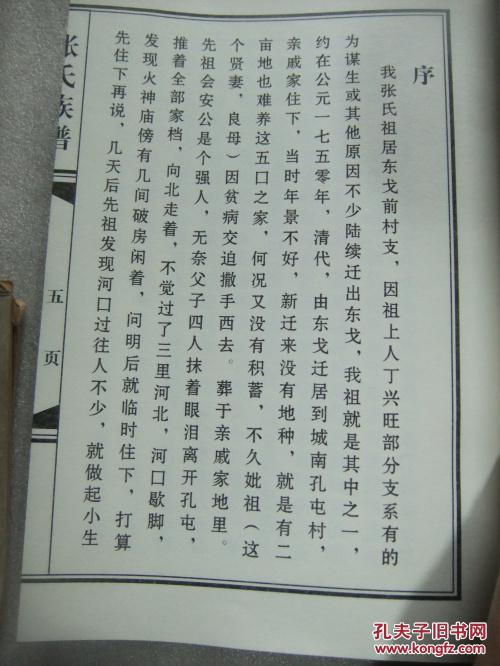 序
我张氏祖居东戈前村支，因祖上人丁兴旺部分支系有的
为谋生或其他原因不少陆续迁出东戈，我祖就是其中之一，
约在公元一七五零年，清代，由东戈迁居到城南孔屯村，
亲戚家住下，当时年景不好，新迁来没有地种，就是有二
亩地也难养这五口之家，何况又没有积蓄，不久妣祖（这
个贤妻，良母）因贫病交迫撒手西去。葬于亲戚家地里。
先祖会安公是个强人，无奈父子四人抹着眼泪离开孔屯，
推着全部家档，向北走着，不觉过了三里河北，河口歇脚，
发现火神庙傍有几间破房闲着，问明后就临时住下，打算
先住下再说，几天后先祖发现河口过往人不少，就做起小生
张氏族谱
五页
孔夫子旧书网
www.kongfz.com